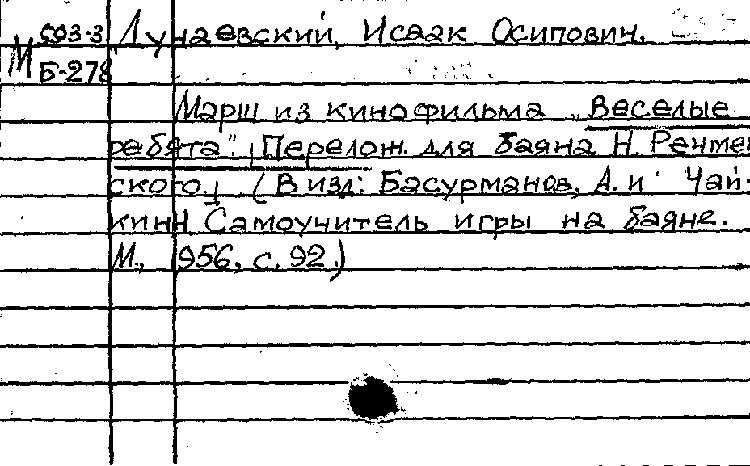 М 593-3 Дунаевский, Исаак Осипович.
Б-278
Марш из кинофильма „Веселые
ребята". [Перелож. для баяна Н. Речмен-
ского.] (В изд: Басурманов, А. и Чай-
кин Н. Самоучитель игры на баяне.
М., 1956, с. 92.)